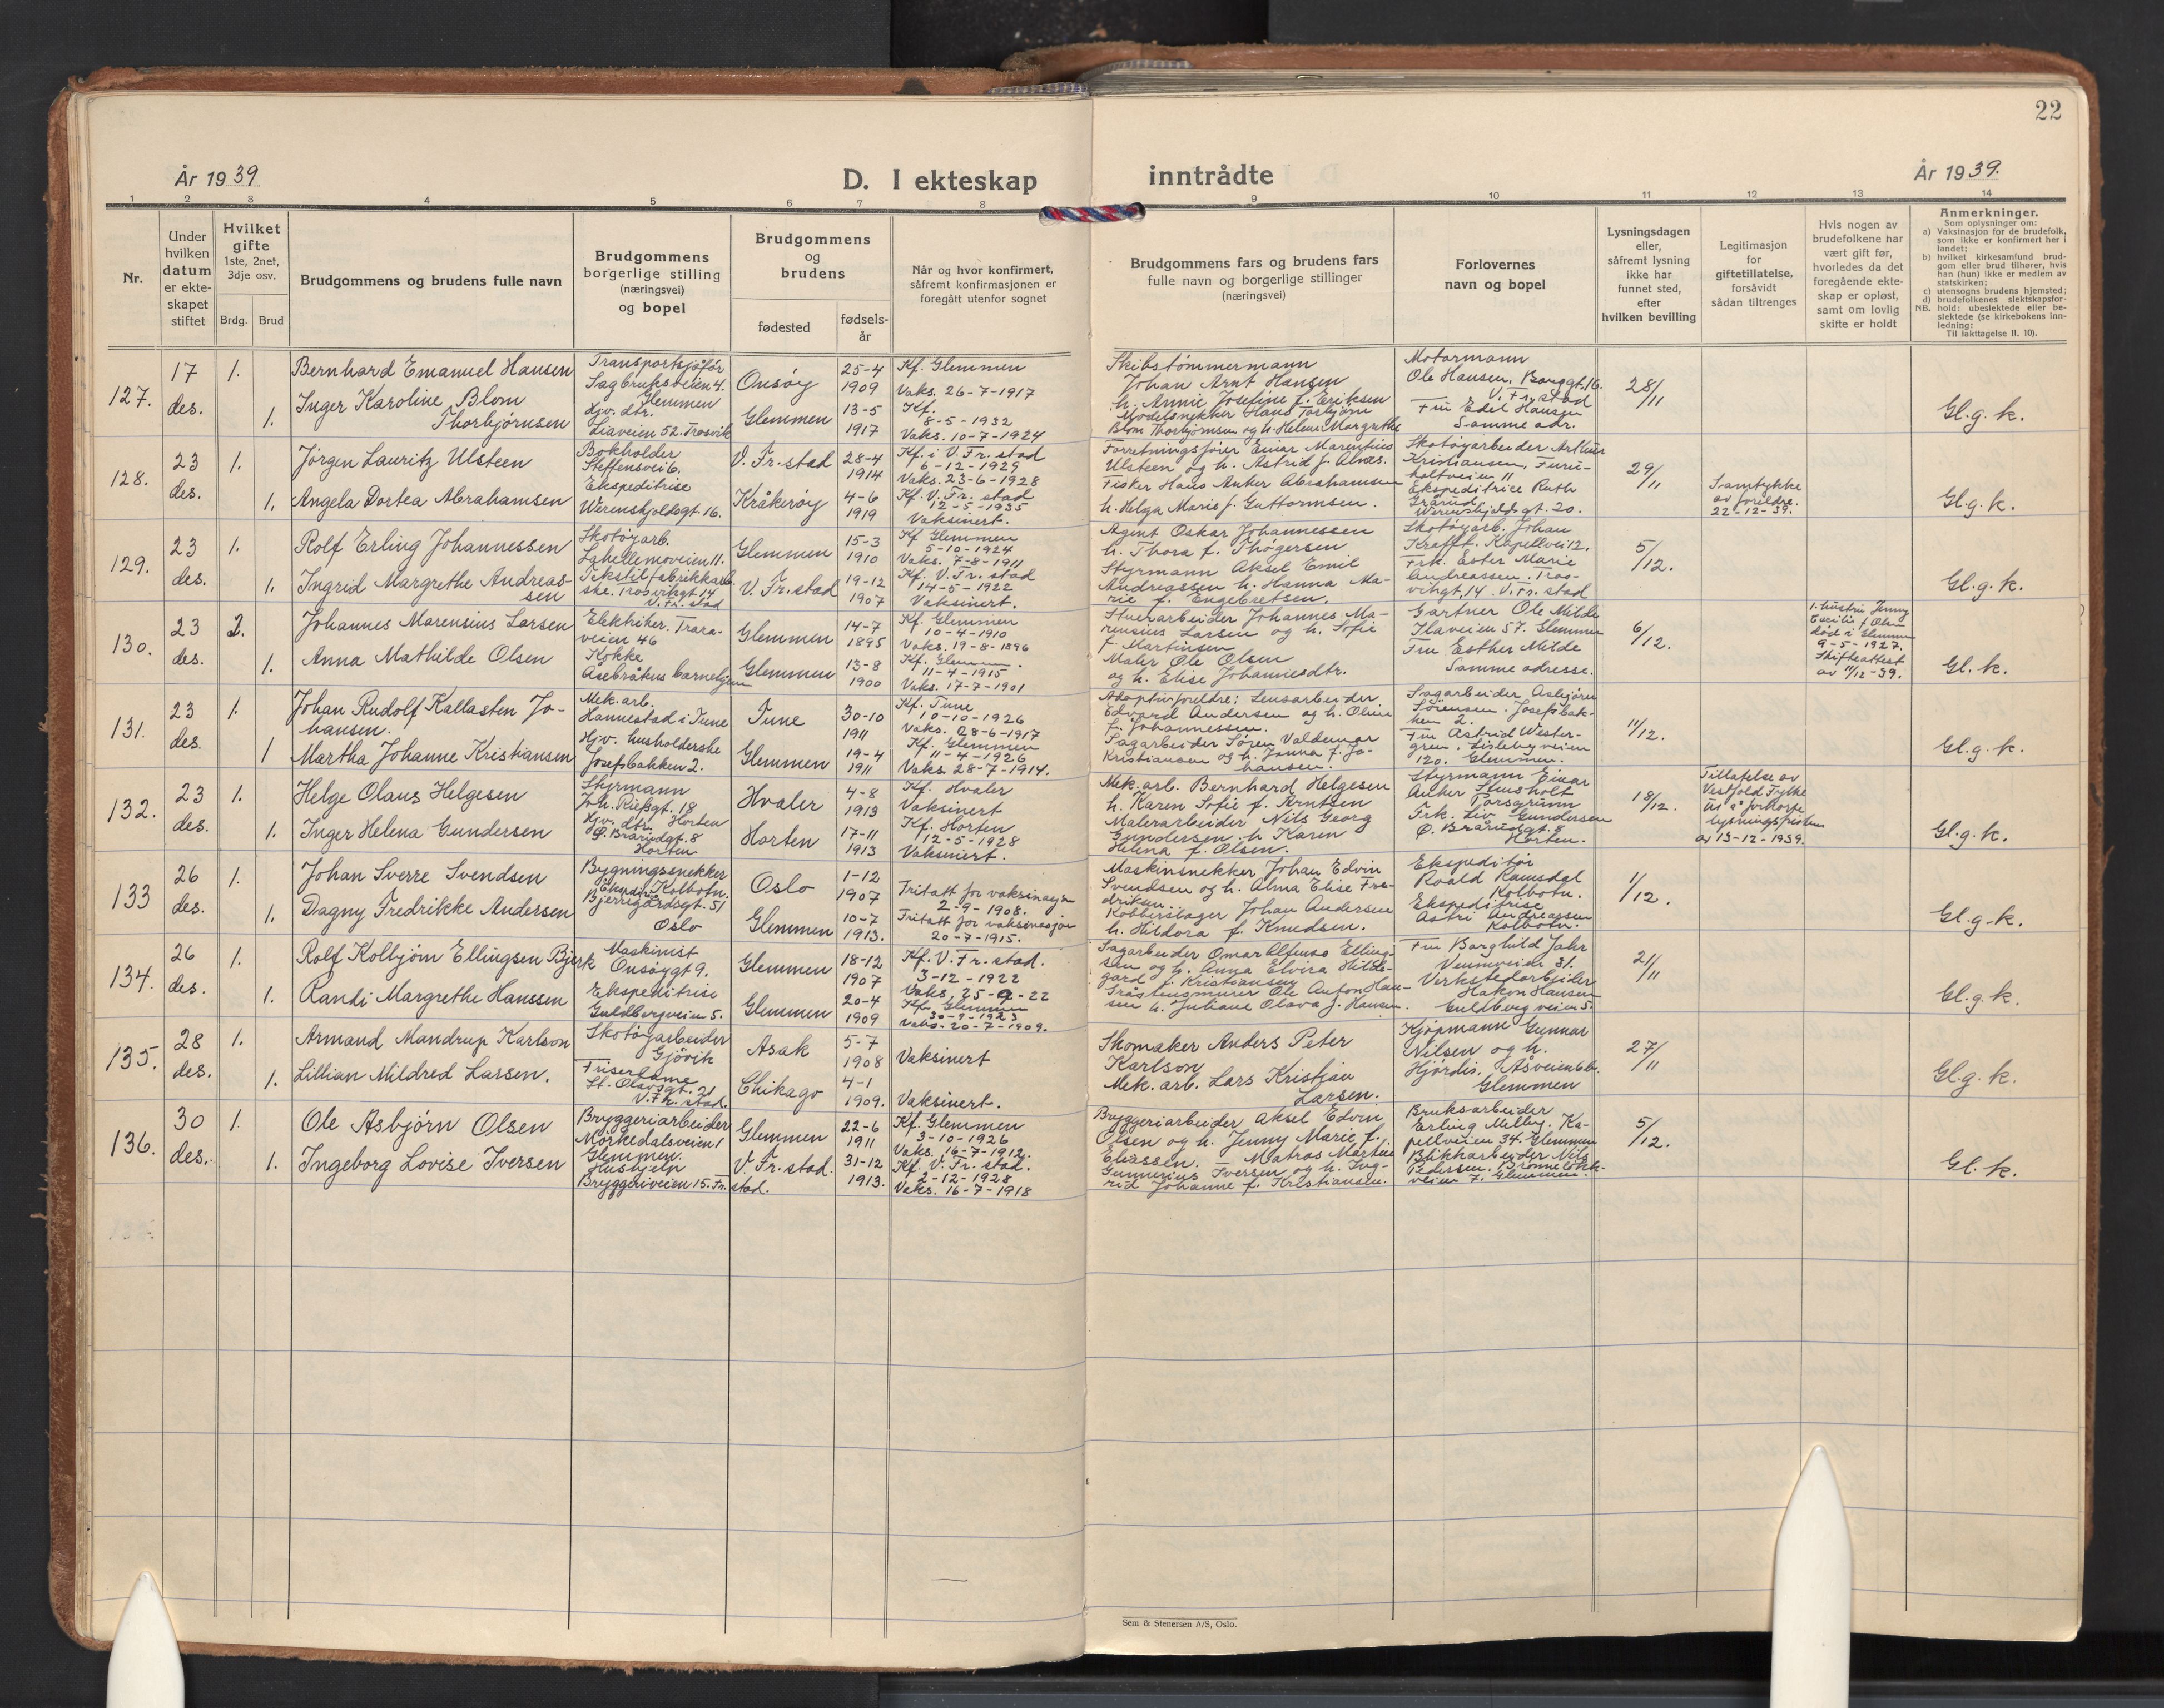 22
År 1939
D. I ekteskap inntrådte
År 1939.
1 2 3 4 5 6 7 8 9 10 11 12 13 14
Nr.
Under hvilken datum er ekteskapet stiftet
Hvilket gifte 1ste, 2net, 3dje osv.
Brdg. Brud
Brudgommens og brudens fulle navn
Brudgommens borgerlige stilling (næringsvei) og bopel
Brudgommens og brudens
fødested
fødselsår
Når og hvor konfirmert, såfremt konfirmasjonen er foregått utenfor sognet
Brudgommens fars og brudens fars fulle navn og borgerlige stillinger (næringsvei)
Forlovernes navn og bopel
Lysningsdagen eller, såfremt lysning ikke har funnet sted, efter hvilken bevilling
Legitimasjon for giftetillatelse, forsåvidt sådan tiltrenges
Hvis nogen av brudefolkene har vært gift før, hvorledes da det foregående ekteskap er opløst, samt om lovlig skifte er holdt
Anmerkninger.
Som oplysninger om:
a) Vaksinasjon for de brudefolk, som ikke er konfirmert her i landet;
b) hvilket kirkesamfund brudgom eller brud tilhører, hvis han (hun) ikke er medlem av statskirken;
c) utensogns brudens hjemsted;
d) brudefolkenes slektskapsforhold: ubeslektede eller beslektede (se kirkebokens innledning:
NB. Til iakttagelse II. 10).
127. 17 des. 1. Bernhard Emanuel Hansen
Transportsjåfør Sagbruksveien 4. Glemmen
Onsøy 25-4 1909
Kf. Glemmen
Vaks. 26-7-1917
1. Inger Karoline Blom Thorbjørnsen
Hjv. dtr. Liaveien 52. Trosvik
Glemmen 13-5 1917
Kf. 8-5-1932
Vaks. 10-7-1924
Skibstømmermann
Johan Arnt Hansen
h. Annie Josefine f. Eriksen
Modelsnekker Hans Torbjørn
Blom Thorbjørnsen og h. Helene Margrethe
Motormann
Ole Hansen, Borggt. 16.
V. Fr. stad
Fru Edel Hansen
Samme adr.
28/11
Gl.g.k.
128. 23 des. 1. Jørgen Lauritz Ulsteen
Bokholder Steffensvei 6.
V. Fr. stad 28-4 1914
Kf. i V. Fr. stad
6-12-1929
Vaks. 23-6-1928
1. Angela Dortea Abrahamsen
Ekspeditrise
Werenskjoldsgt. 16.
Kråkerøy 4-6 1919
Kf. V. Fr. stad
12-5-1935
Vaksinert.
Forretningsfører Einar Marentius
Ulsteen og h. Astrid f. Alnæs.
Fisker Hans Anker Abrahamsen
h. Helga Marie f. Guttormsen.
Skotøyarbeider Arthur
Kristiansen, Furuholtveien 11
Ekspeditrice Ruth
Grårud
Werenskjoldsgt. 20.
29/11
Samtykke av foreldre.
22-12-39.
Gl.g.k.
129. 23 des. 1. Rolf Erling Johannessen
Skotøyarb.
Lahellemoveien 11.
Glemmen 15-3 1910
Kf. Glemmen
5-10-1924
Vaks. 7-8-1911
1. Ingrid Margrethe Andreassen
Tekstilfabrikkarb.ske. Trosvikgt. 14
V. Fr. stad
V. Fr. stad 19-12 1907
Kf. V. Fr. stad
14-5-1922
Vaksinert.
Agent Oskar Johannessen
h. Thora f. Thøgersen
Styrmann Aksel Emil
Andreassen h. Hanna Marie f. Engebretsen.
Skotøyarb. Johan
Krafft. Kapellvei 12.
Frk. Ester Marie
Andreassen. Trosvikgt. 14. V. Fr. stad
5/12.
Gl.g.k.
130. 23 des. 2. Johannes Marensius Larsen
Elektriker. Traraveien 46
Glemmen 14-7 1895
Kf. Glemmen
10-4-1910
Vaks. 19-8-1896
1. Anna Mathilde Olsen
Kokke
Åsebråkus barnehjem
Glemmen 13-8 1900
Kf. Glemmen.
11-4-1915
Vaks. 17-7-1901
Stuerarbeider Johannes Marensius Larsen og h. Sofie
f. Martinsen
Maler Ole Olsen
og h. Elise Johannesdtr.
Gartner Ole Milde
Ilaveien 57. Glemmen
Fru Esther Milde
Samme adresse.
6/12.
1. hustru Jenny
Cecilie f. Olsen
død i Glemmen
9-5-1927.
Skifteattest
av 11/12-39.
Gl.k.
131. 23 des. 1. Johan Rudolf Kallasten Johansen.
Mek. arb.
Hannestad i Tune
Tune 30-10 1911
Kf. Tune
10-10-1926
Vaks. 28-6-1917
1 Martha Johanne Kristiansen
Hjv. husholderske
Josefsbakken 2.
Glemmen 19-4 1911
Kf. Glemmen
11-4-1926
Vaks. 28-7-1914.
Adoptivforeldre: Lensarbeider
Edvard Andersen og h. Oline
f. Johannessen.
Sagarbeider Søren Valdemar
Kristiansen og h. Janna f. Johansen.
Sagarbeider Asbjørn
Sørensen. Josefsbakken 2.
Fru Astrid Westergren. Lislebyveien
120. Glemmen.
11/12.
Gl.g.k.
132. 23 des. 1. Helge Olaus Helgesen
Styrmann
Joh. Riefsgt. 18
Horten
Hvaler 4-8 1913
Kf. Hvaler
Vaksinert
1. Inger Helena Gundersen
Hjv. dtr.
Ø. Brårudgt. 8
Horten
Horten 17-11 1913
Kf. Horten
12-5-1928
Vaksinert.
Mek. arb. Bernhard Helgesen
h. Karen Sofie f. Arntsen
Malerarbeider Nils Georg
Gundersen. h Karen
Helena f. Olsen.
Styrmann Einar
Anker Stensholt
Porsgrunn
Frk. Liv Gundersen
Ø. Brårudgt. 8
Horten.
18/12.
Tillatelse av
Vestfold Fylke
til å forkorte
lysningsfristen
av 13-12-1939.
Gl.g.k.
133 26 des. 1. Johan Sverre Svendsen
Bygningssnekker
Kolbotn.
Oslo 1-12 1907
Fritatt for vaksinasjon
2-9-1908.
1. Dagny Fredrikke Andersen
Ekspeditrise
Bjerregårdsgt. 51
Oslo
Glemmen 10-7 1913.
Fritatt for vaksinasjon
20-7-1915.
Maskinsnekker Johan Edvin
Svendsen og h. Alma Elise Fredriksen.
Kobberslager Johan Andersen
h. Hildora f. Knudsen.
Ekspeditør
Roald Ramsdal
Kolbotn.
Ekspeditrise
Astri Andreassen
Kolbotn.
1/12.
Gl.g.k.
134. 26 des. 1. Rolf Kolbjørn Ellingsen Bjerk
Maskinist
Onsøygt 9.
Glemmen 18-12 1907
Kf. V. Fr. stad.
3-12-1922
Vaks. 25-9-22
1. Randi Margrethe Hanssen
Ekspeditrise
Guldbergveien 5.
Glemmen 20-4 1909
Kf. Glemmen
30-9-1923
Vaks. 20-7-1909.
Sagarbeider Omar Alfonso Ellingsen og h. Anna Elvira Hildegard f. Kristiansen
Gråstensmurer Ole Anton Hansen h. Juliane Olava f. Hansen
Fru Borghild Jahr
Veumveien 31.
Verkstedarbeider
Håkon Hansen
Guldbergveien 5.
21/11
Gl.g.k.
135. 28 des. 1. Armand Mandrup Karlson
Skotøyarbeider
Gjøvik
Asak 5-7 1908
Vaksinert
1. Lillian Mildred Larsen.
Friserdame
St. Olavsgt. 21
V. Fr. stad.
Chikago 4-1 1909.
Vaksinert.
Skomaker Anders Peter
Karlson
Mek. arb. Lars Kristian
Larsen.
Kjøpmann Gunnar
Nilsen og h.
Hjørdis. Åsveien 6b.
Glemmen
27/11
Gl.g.k.
136. 30 des. 1. Ole Asbjørn Olsen
Bryggeriarbeider
Mørkedalsveien 1
Glemmen.
Glemmen 22-6 1911
Kf. Glemmen
3-10-1926
Vaks. 16-7-1912.
1. Ingeborg Lovise Iversen
Hushjelp
Bryggeriveien 15. Fr. stad.
V. Fr. stad. 31-12 1913.
Kf. V. Fr. stad.
2-12-1928
Vaks. 16-7-1918
Bryggeriarbeider Aksel Edvin
Olsen og h. Jenny Marie f.
Eliassen. Matros Martin
Gunnerius Iversen og h. Ingrid Johanne f. Kristiansen.
Bruksarbeider
Erling Melby. Kapellveien 34. Glemmen
Blikkarbeider Nils
Pedersen. Brønneløkkveien 7. Glemmen.
5/12.
Gl.k.
Sem & Stenersen A/S, Oslo.